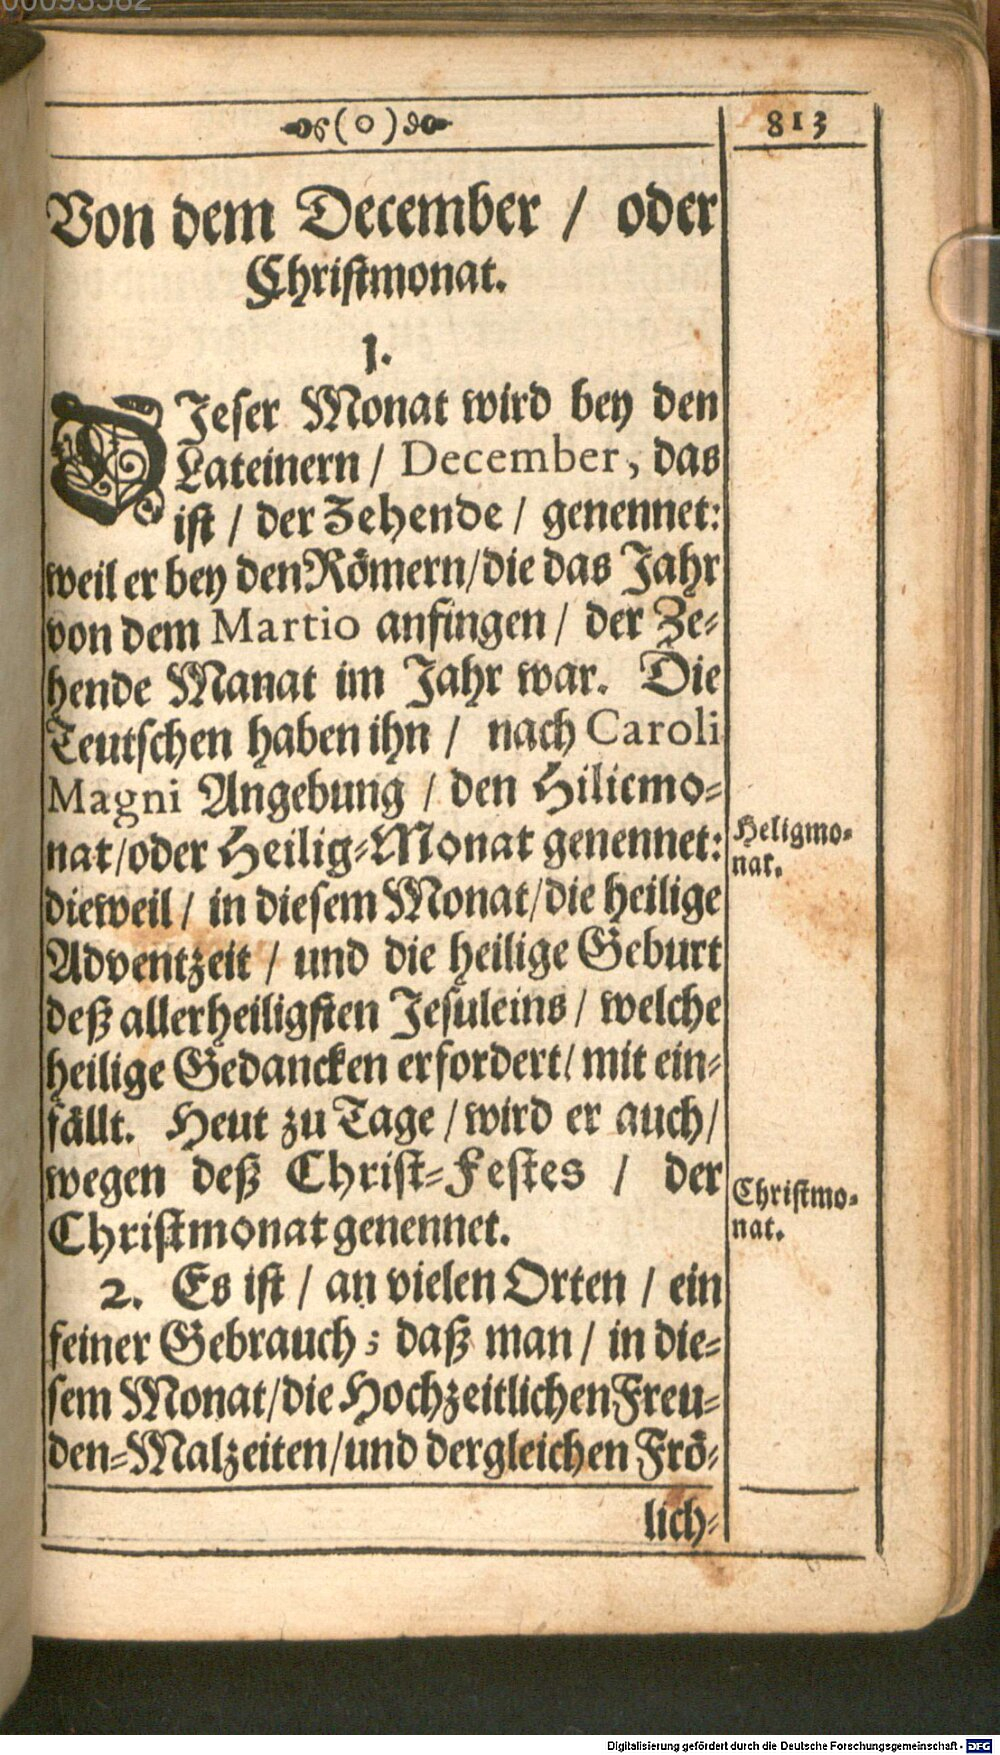 00093582
(o) 813
Von dem December / oder
Christmonat.
1.
DJeser Monat wird bey den
Lateinern / December, das
ist / der Zehende / genennet:
weil er bey den Römern/die das Jahr
von dem Martio anfingen / der Ze-
hende Manat im Jahr war. Die
Teutschen haben ihn / nach Caroli
Magni Angebung / den Hilicmo-
nat/oder Heilig-Monat genennet:
Heligmo-
nat.
dieweil / in diesem Monat/die heilige
Adventzeit / und die heilige Geburt
deß allerheiligsten Jesuleins / welche
heilige Gedancken erfordert/ mit ein-
fällt. Heut zu Tage / wird er auch/
wegen deß Christ-Festes / der
Christmonat genennet.
Christmo-
nat.
2. Es ist / an vielen Orten / ein
feiner Gebrauch; daß man / in die-
sem Monat/die Hochzeitlichen Freu-
den-Malzeiten/und dergleichen Frö-
lich-
Digitalisierung gefördert durch die Deutsche Forschungsgemeinschaft - DFG